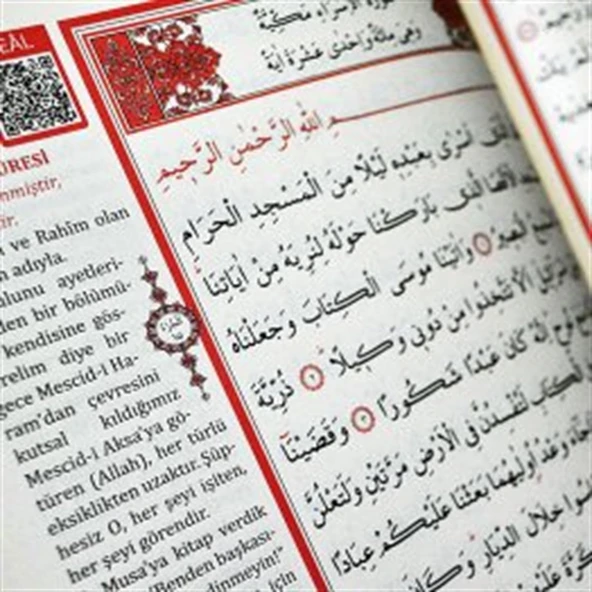 EÂL
ÛRESİ
nmiştir,
ir.
t ve Rahîm olan
n adıyla.
ulunu ayetleri-
den bir bölümü-
kendisine gös-
relim diye bir
gece Mescid-i Ha-
ram'dan çevresini
kutsal kıldığımız
Mescid-i Aksa'ya gö-
türen (Allah), her türlü
eksiklikten uzaktır. Şüp-
hesiz O, her şeyi işiten,
her şeyi görendir.
Musa'ya kitap verdik
"Benden başkası-
dinmeyin!"
için
سورة الإسراء مكية
وهي مائة واحدى عشرة اية
الله الرحمن الرحيم
اسرى بعبده ليلا من المسجد الحرام
الاقصا الذى باركنا حوله لنريه من اياتنا
البصير ١ واتينا موسى الكتاب وجعلناه
الا تتخذوا من دونى وكيلا ٢ ذرية
نوح انه كان عبدا شكورا ٣ وقضينا
الكتاب لتفسدن فى الارض مرتين ولتعلن
وعد اوليهما بعثنا عليكم عبادا
خلال الديار وكان
عليهم